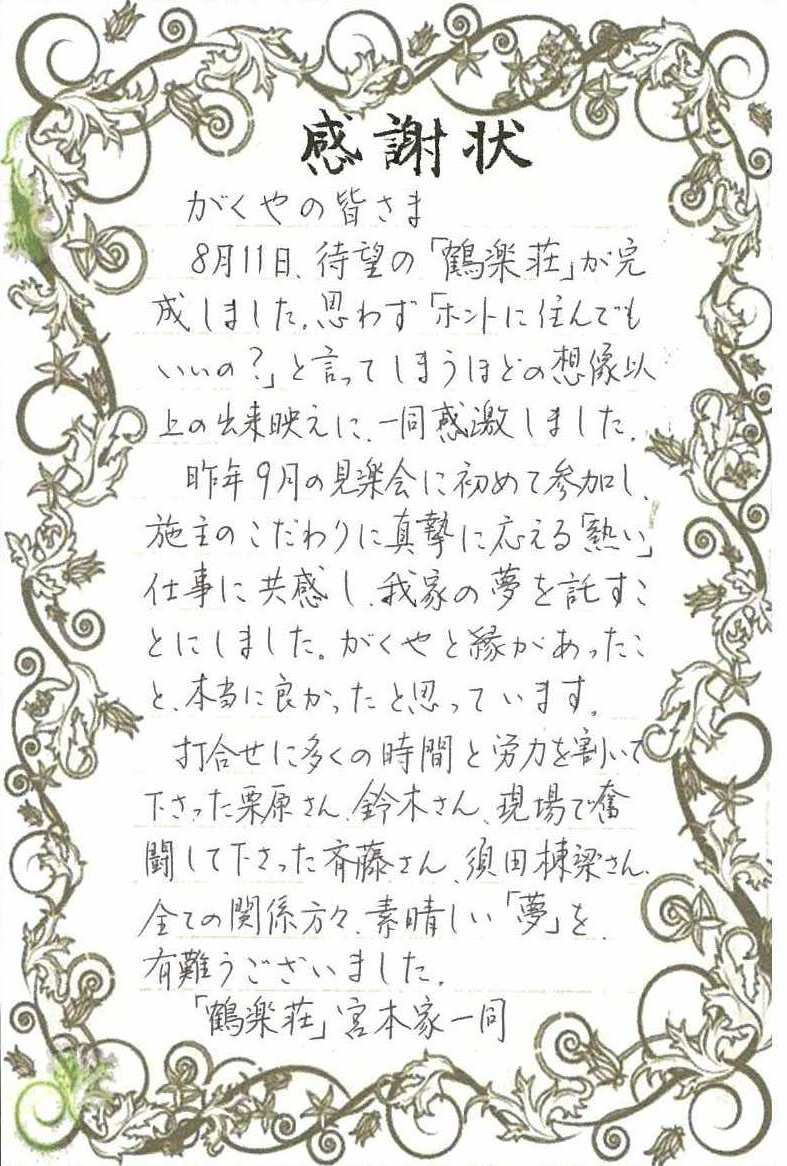 感謝状
がくやの皆さま
8月11日、待望の「鶴楽荘」が完
成しました。思わず「ホントに住んでも
いいの?」と言ってしまうほどの想像以
上の出来映えに、一同感激しました。
昨年9月の見楽会に初めて参加し、
施主のこだわりに真摯に応える「熱い」
仕事に共感し、我家の夢を託すこ
とにしました。がくやと縁があったこ
と、本当に良かったと思っています。
打合せに多くの時間と労力を割いて
下さった栗原さん、鈴木さん、現場で奮
闘して下さった斉藤さん、須田棟梁さん、
全ての関係方々、素晴しい「夢」を、
有難うございました。
「鶴楽荘」宮本家一同